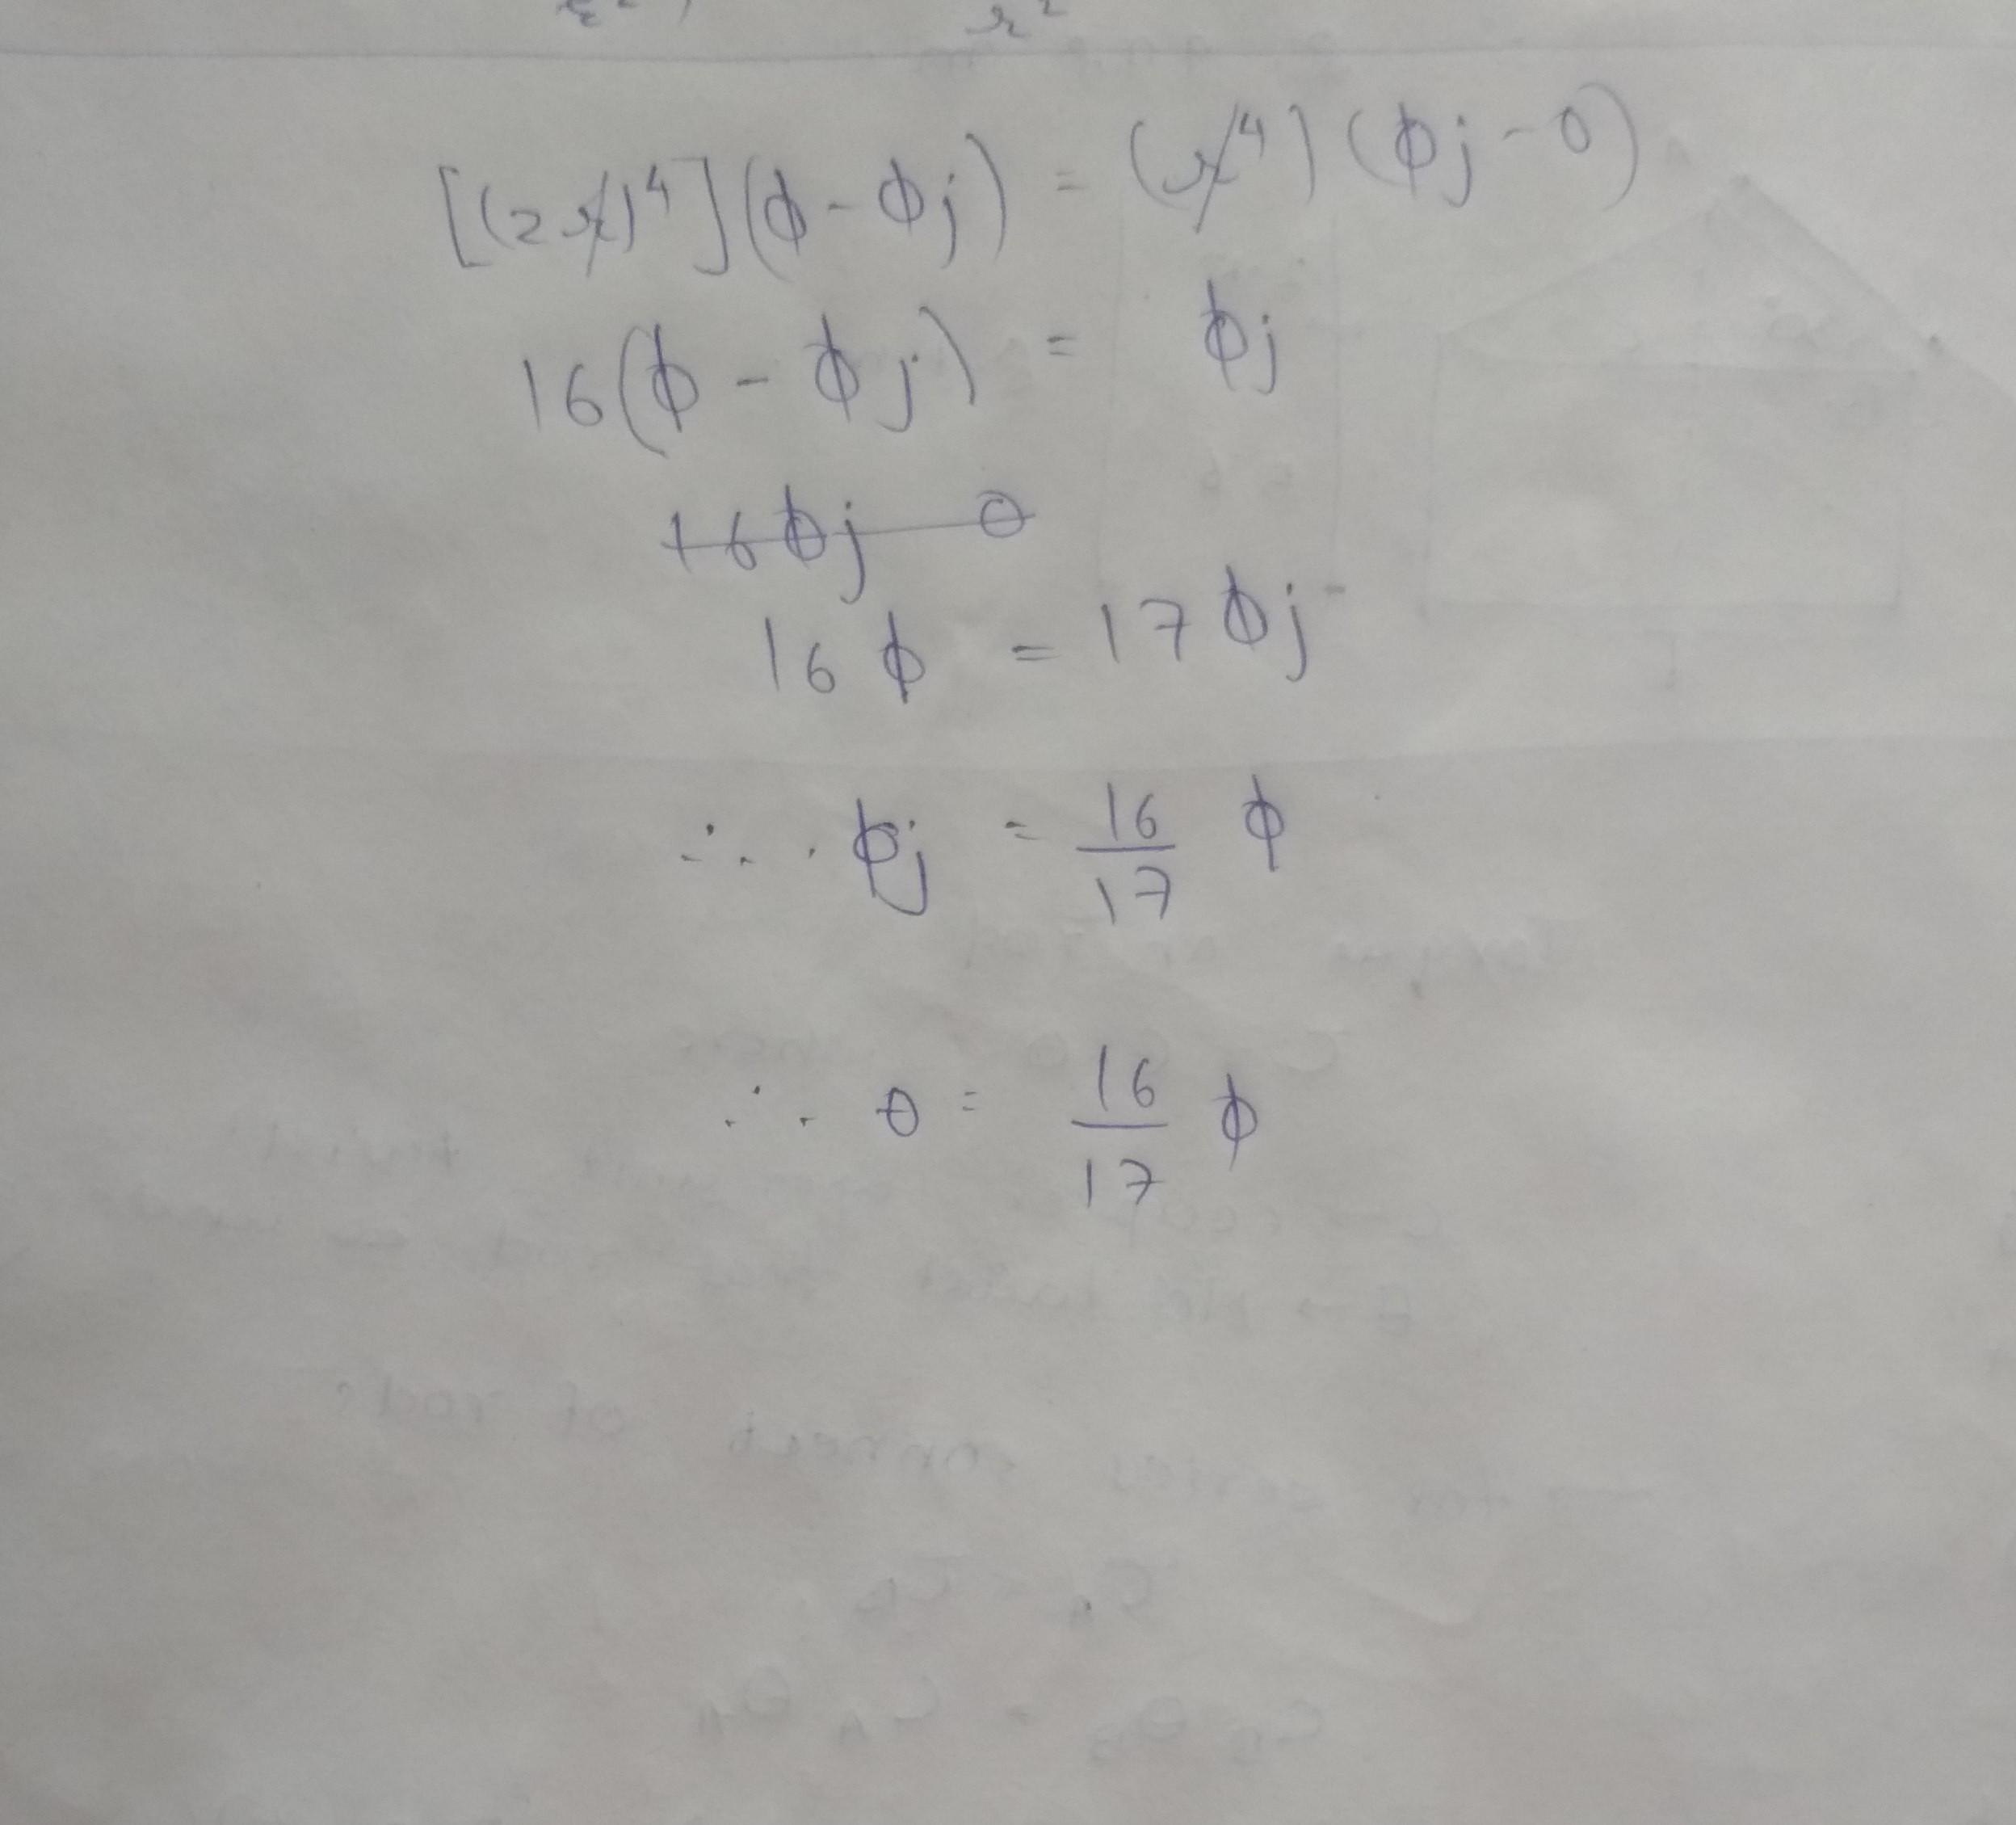 [(2r)⁴](ϕ - ϕj) = (r⁴) (ϕj - 0)
16(ϕ - ϕj) = ϕj
16ϕj 0
16 ϕ = 17 ϕj
∴ ϕj = 16/17 ϕ
∴ θ = 16/17 ϕ